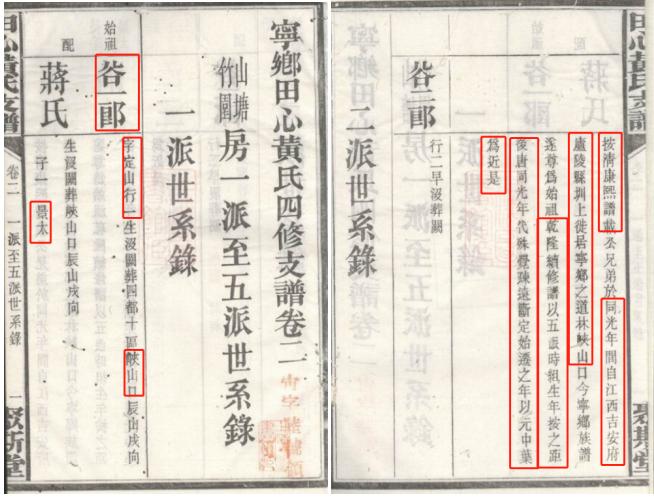 寧鄉田心黃氏四修支譜卷二
山塘
竹圍
房一派至五派世系錄
一派世系錄
始祖
谷一郎
字定山行一生沒闕葬四都十區峽山口辰山戌向
配
蔣氏
生沒闕葬峽山口辰山戌向
子一 景太
田心黃氏支譜
卷二
一派至五派世系錄
一
斯堂
田心黃氏支譜
按清康熙譜載公兄弟於同光年間自江西吉安府
廬陵縣圳上徙居寧鄉之道林峽山口今寧鄉族譜
遂尊為始祖乾隆續修譜以五派時組生年按之距
後唐同光年代殊覺疎遠斷定始遷之年以元中葉
為近是
谷二郎
行二早沒葬闕
二派世系錄
斯堂